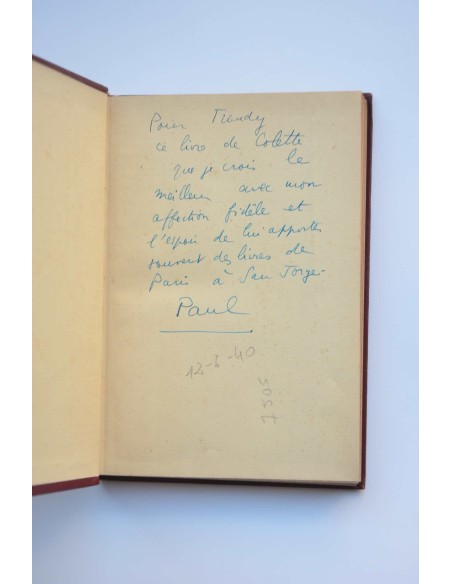 Pour Trudy
ce livre de Colette
que je crois le
meilleur avec mon
affection fidèle et
l'espoir de lui apporter
souvent des livres de
Paris à San Jorge-
Paul
12-6-40
7505